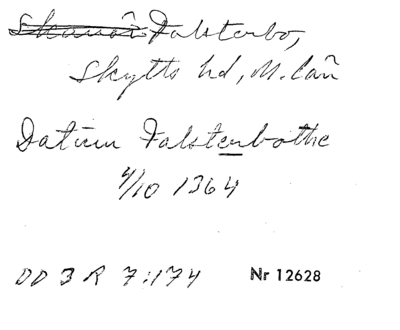 Skanör Falsterbo,
Skytts hd, M. län
Datum Falstenbothe
4/10 1364
DD 3 R 7:174 Nr 12628